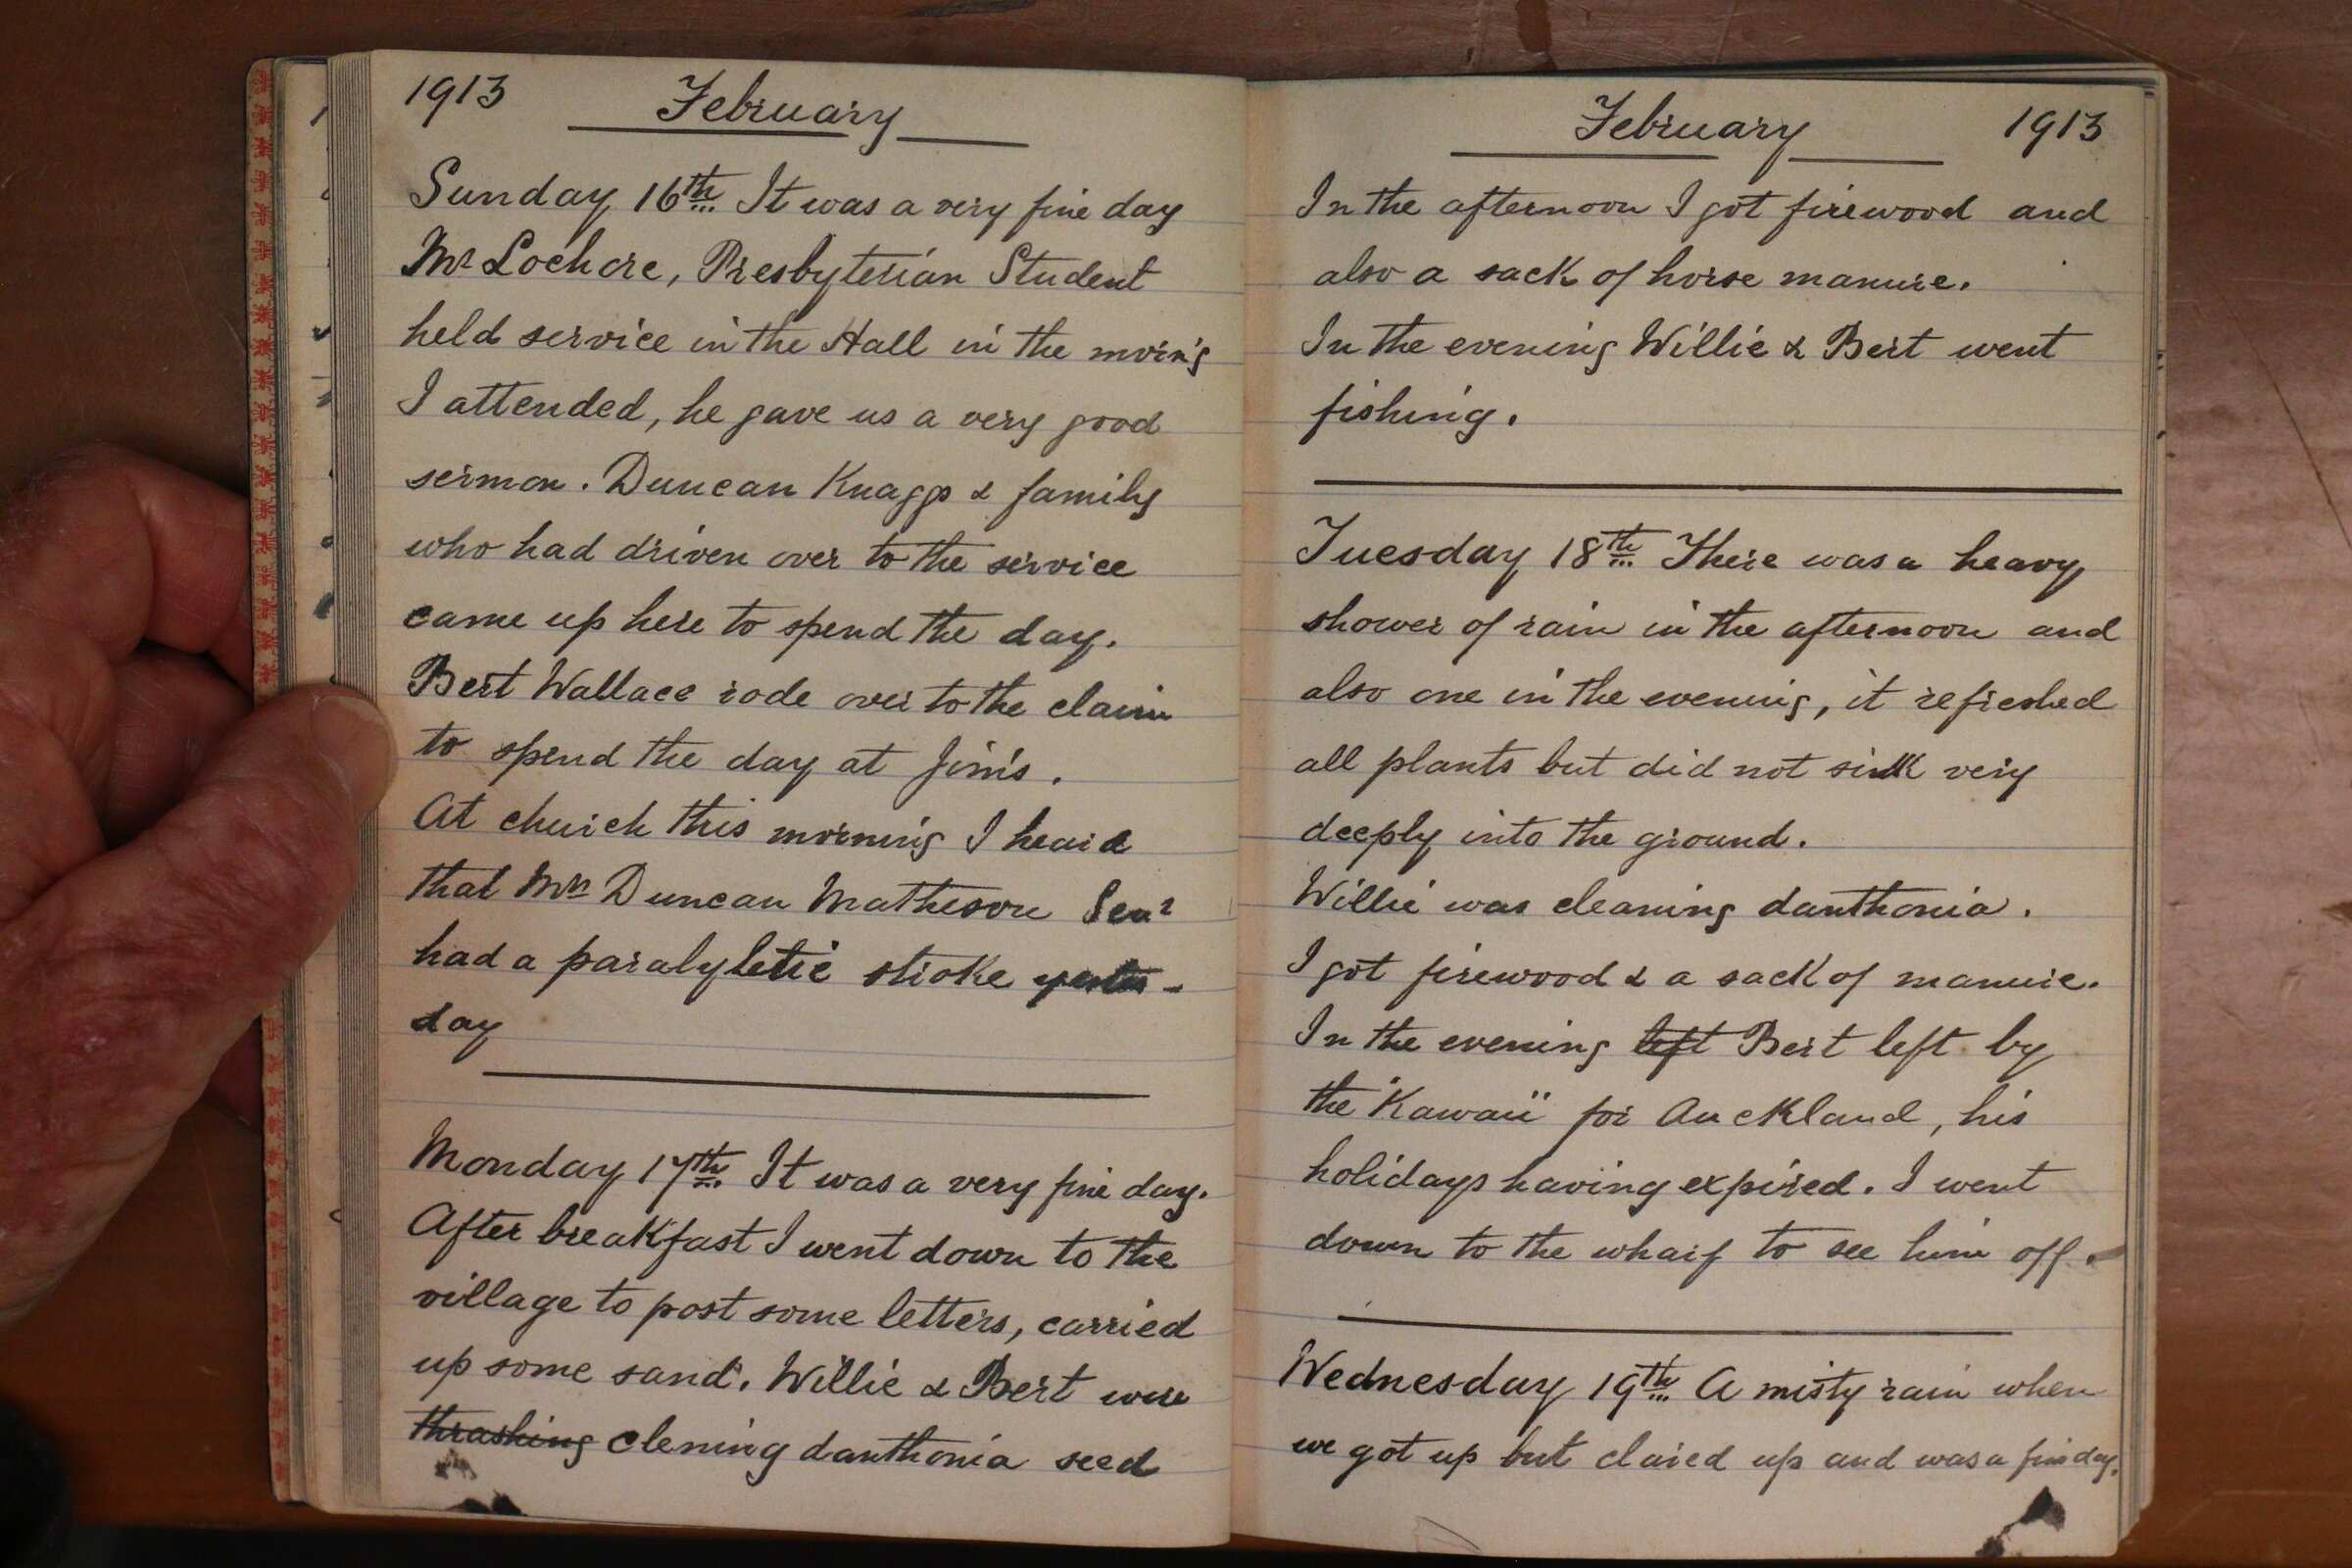 1913 February
Sunday 16th It was a very fine day
Mr Lochore, Presbyterian Student
held service in the Hall in the morn'g
I attended, he gave us a very good
sermon. Duncan Knaggs & family
who had driven over to the service
came up here to spend the day.
Bert Wallace rode over to the claim
to spend the day at Jim's.
At church this morning I heard
that Mrs Duncan Matheson Senr
had a paralyletic stroke yester-
day
Monday 17th It was a very fine day.
After breakfast I went down to the
village to post some letters, carried
up some sand. Willie & Bert were
thrashing clening danthonia seed
February 1913
In the afternoon I got firewood and
also a sack of horse manure.
In the evening Willie & Bert went
fishing.
Tuesday 18th There was a heavy
shower of rain in the afternoon and
also one in the evening, it refreshed
all plants but did not sink very
deeply into the ground.
Willie was cleaning danthonia.
I got firewood & a sack of manure.
In the evening left Bert left by
the "Kawau" for Auckland, his
holidays having expired. I went
down to the wharf to see him off.
Wednesday 19th A misty rain when
we got up but clared up and was a fine day.